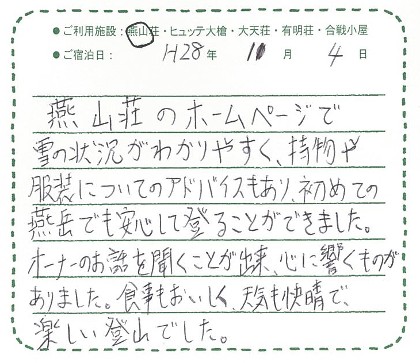 ●ご利用施設：燕山荘・ヒュッテ大槍・大天荘・有明荘・合戦小屋
●ご宿泊日： H28年 10月 4日
燕山荘のホームページで
雪の状況がわかりやすく、持物や
服装についてのアドバイスもあり、初めての
燕岳でも安心して登ることができました。
オーナーのお話を聞くことが出来、心に響くものが
ありました。食事もおいしく、天気も快晴で、
楽しい登山でした。